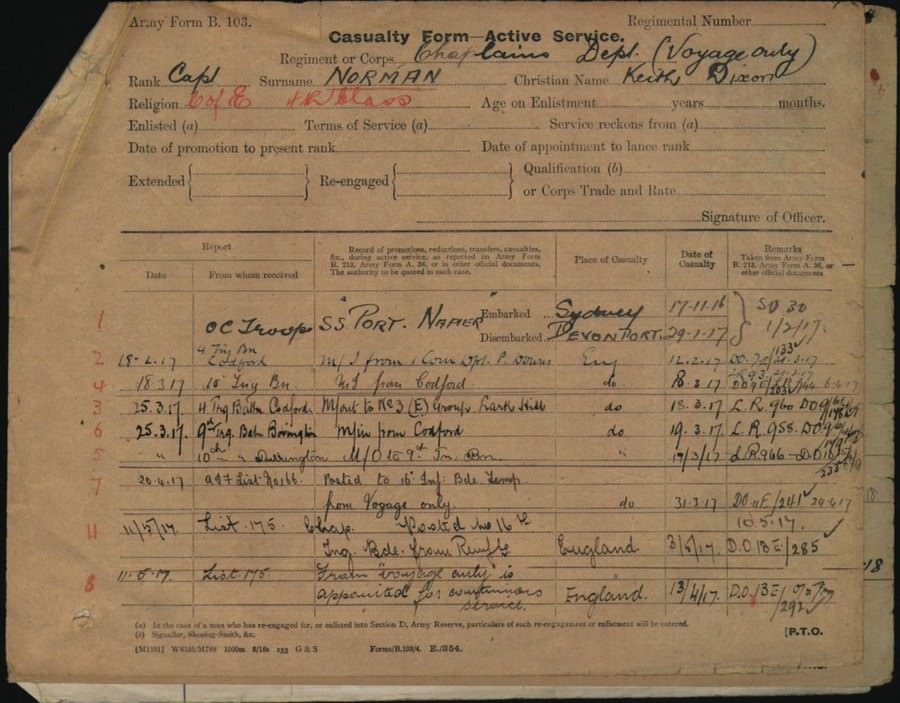 Army Form B. 103.
Regimental Number
Casualty Form—Active Service.
Regiment or Corps Chaplains Dept. (Voyage only)
Rank Capt Surname NORMAN Christian Name Keith Dixon
Religion C of E 4th Class Age on Enlistment years months.
Enlisted (a) Terms of Service (a) Service reckons from (a)
Date of promotion to present rank Date of appointment to lance rank
Extended Re-engaged Qualification (b)
or Corps Trade and Rate
Signature of Officer.
Report
Date From whom received
Record of promotions, reductions, transfers, casualties,
&c., during active service, as reported on Army Form
B. 213, Army Form A. 36, or in other official documents.
The authority to be quoted in each case.
Place of Casualty
Date of
Casualty
Remarks
Taken from Army Form
B. 213, Army Form A. 36, or
other official documents
1 OC Troops SS. PORT. NAPIER Embarked Sydney 17-11-16 SO 30
Disembarked DEVONPORT. 29-1-17 1/2/17.
2 18-2-17 4 Trg Bn Codford M/I from Dpt. Eng 12.2.17
4 18 3 17 Trg Bn M/I from Codford. do 18.3.17
3 25.3.17. 4 Trg Battn Codford. M/out to No 3 (E) Group Lark Hill do 18.3.17 L.R. 960
6 25.3.17. 9th Trg. Batn Bovington M/in from Codford do 19.3.17 L.R. 958.
5 " 10th " Durrington M/O to 9th Tn. Bn. " 19/3/17 L.R. 966
7 20.4.17 List No 166. Posted to Inf: Bde. Temp
from Voyage only do 31.3.17 /241 29.4.17
11 11/5/17. List. 175. Chap. Posted to 16th 10.5.17.
Trg. Bde. from Reinfts England 3/5/17. D.O. 13 E/285
8 11.5.17. List. 175 From "voyage only" is
appointed for continuous England. 13/4/17. D.O. 13 E/
service. /292
18
(a) In the case of a man who has re-engaged for, or enlisted into Section D, Army Reserve, particulars of such re-engagement or enlistment will be entered.
(b) Signaller, Shoeing-Smith, &c.
[P.T.O.
1000m 9/16s 153 G & S Forms/B.103/4. E./354.